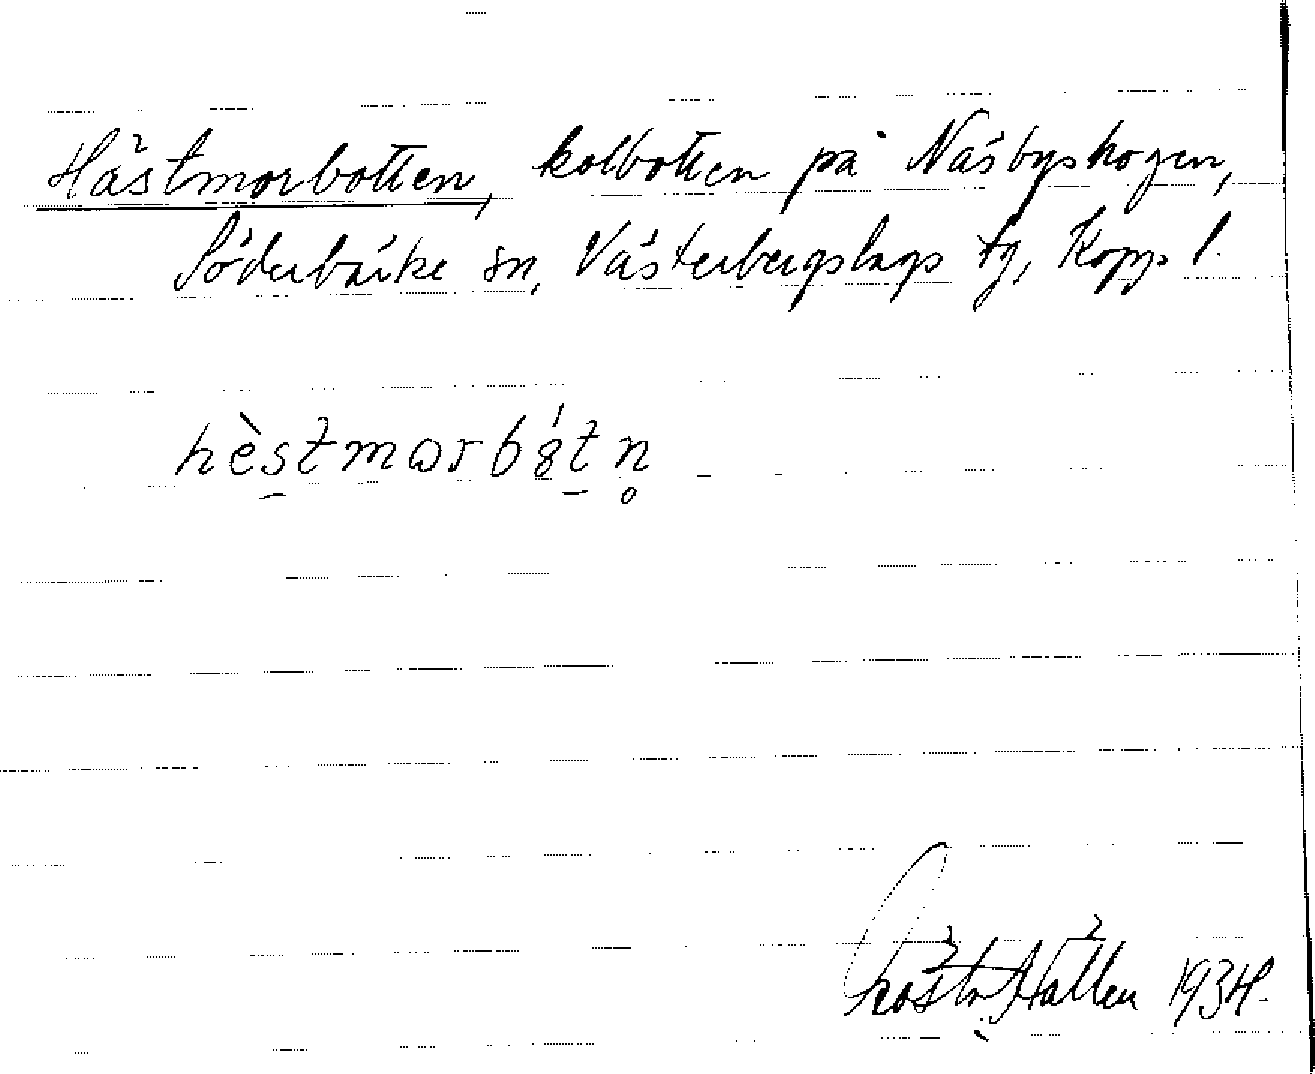 Hästmorbotten, kolbotten på Näsbyskogen,
Söderbärke sn, Västerbergslags tg, Kopp. l.
hèstmɷrbýtn̥
1934.